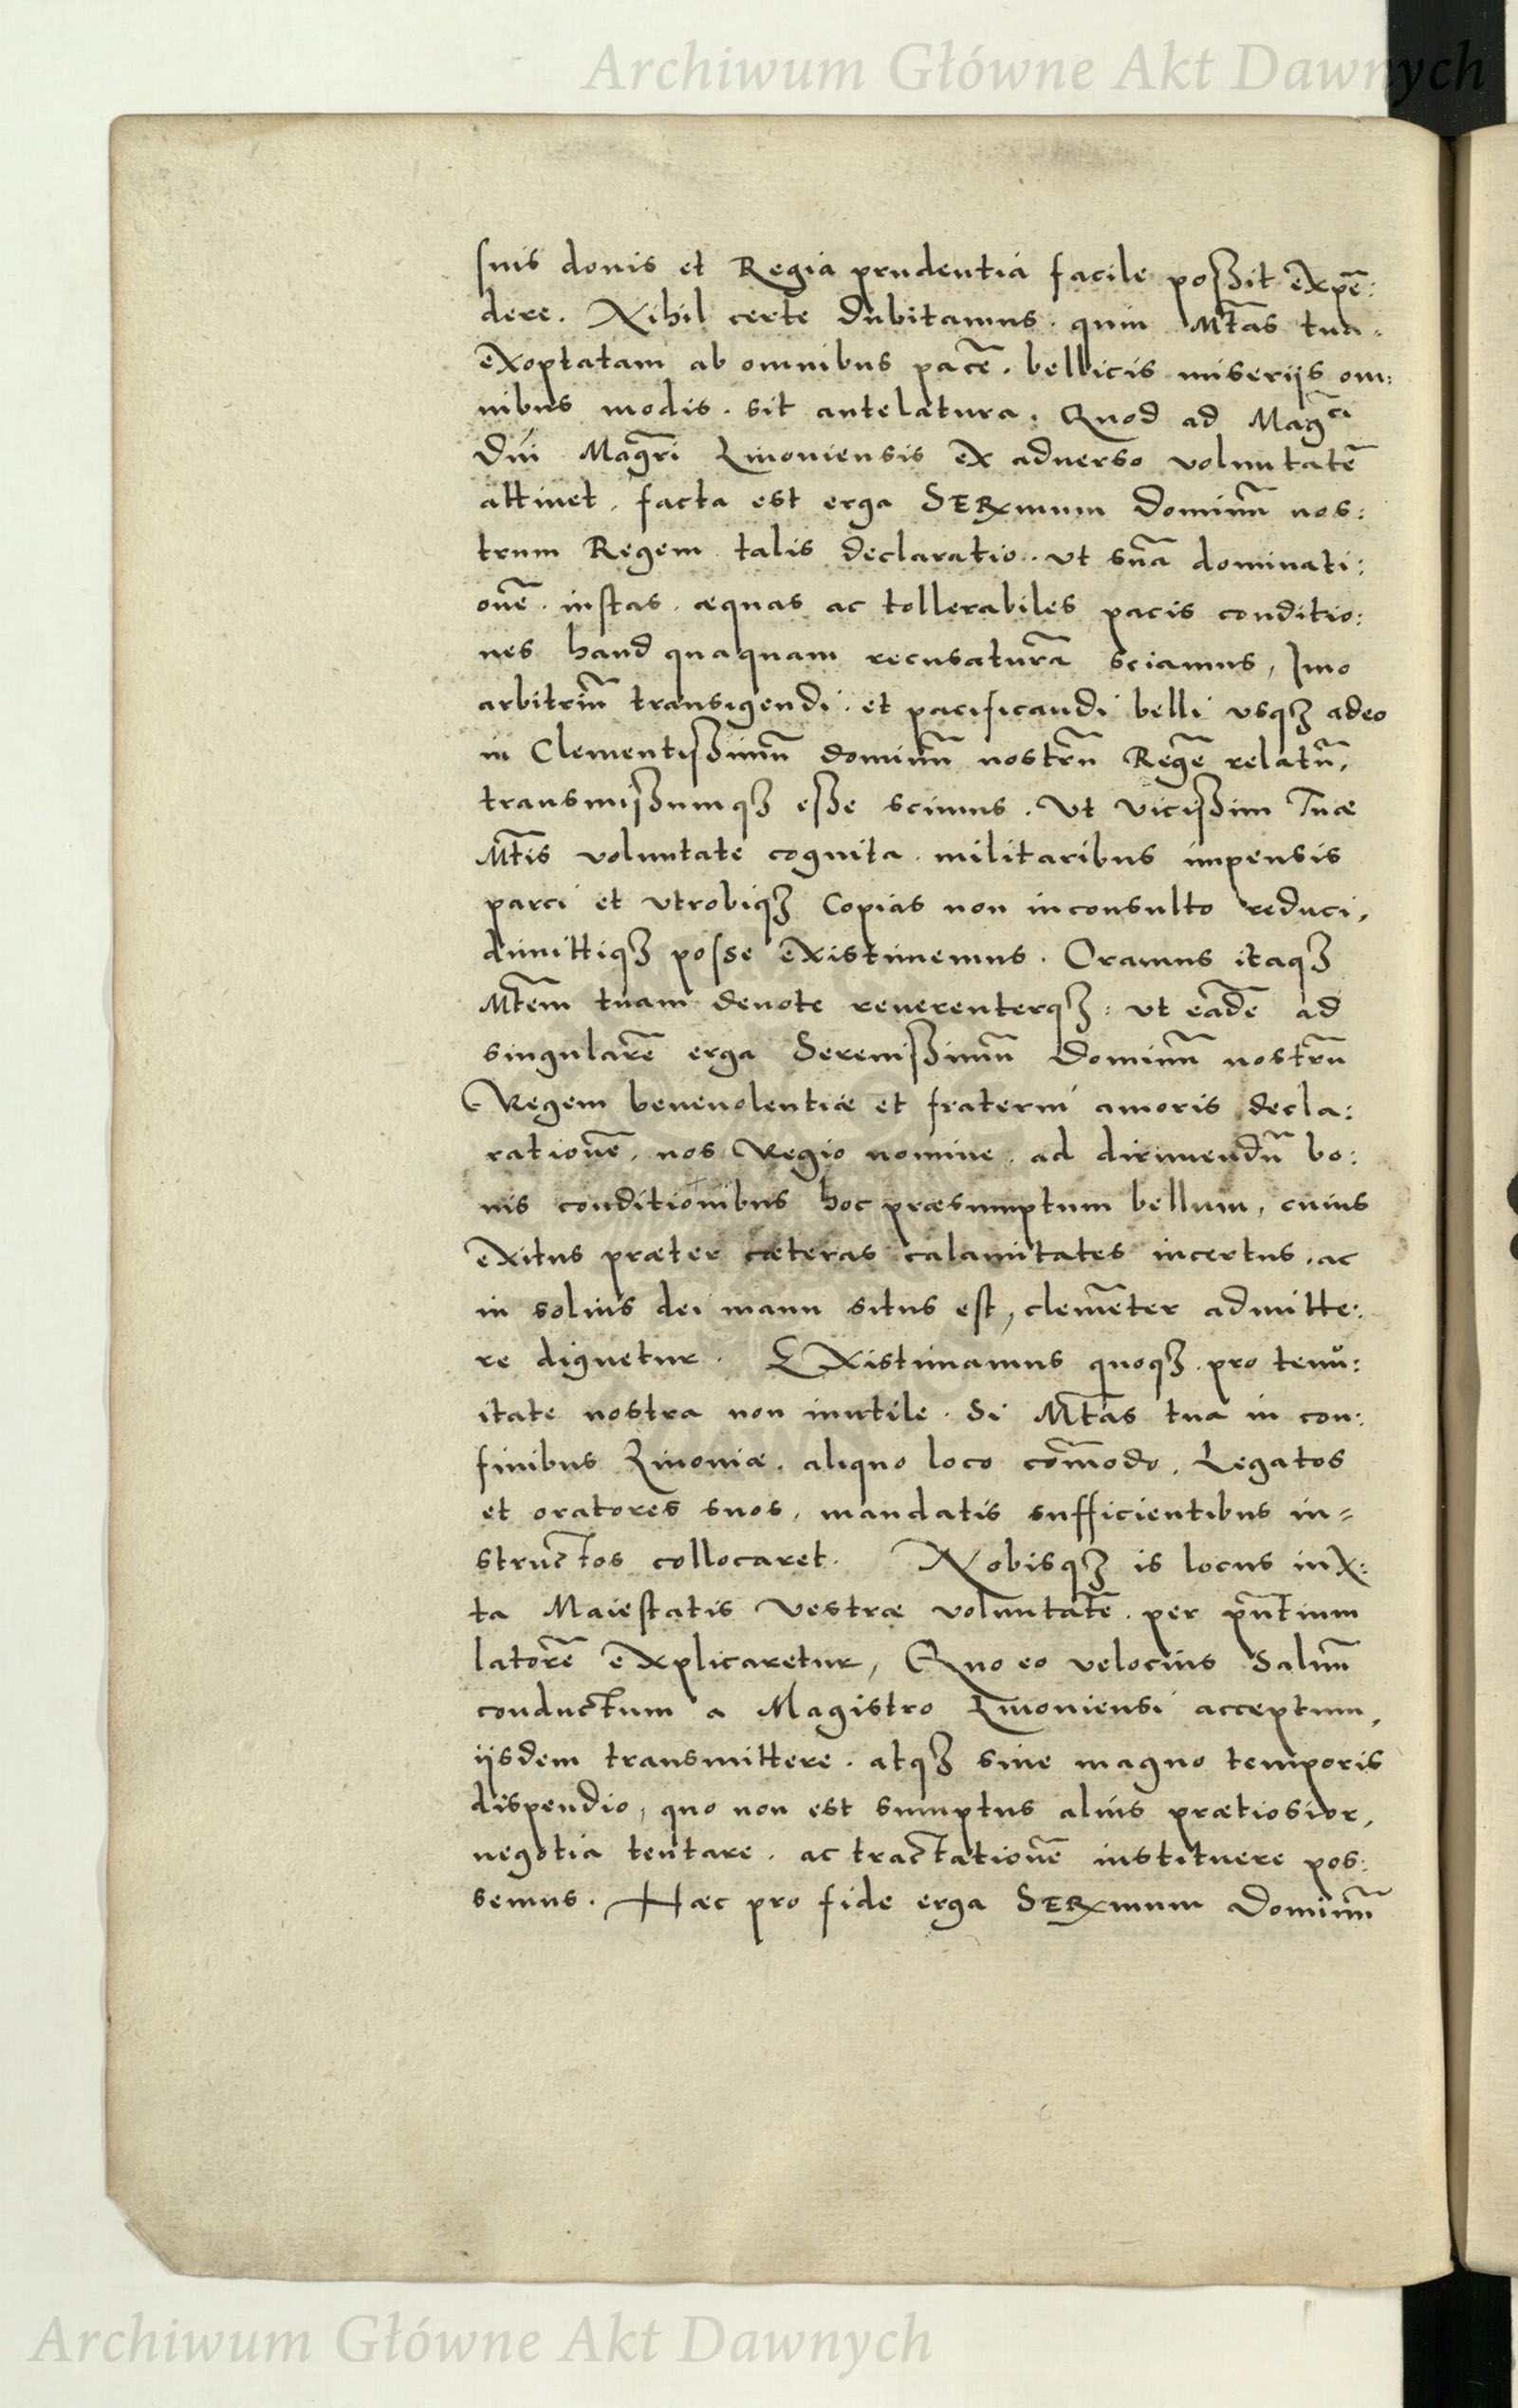 Archiwum Główne Akt Dawnych
suis donis et Regia prudentia facile possit expē:
dere. Nihil certe dubitamus. quin Mtas tua.
exoptatam ab omnibus pacē. bellicis miserijs om:
nibus modis. sit antelatura. Quod ad Magci
Dni Magri Liuoniensis ex aduerso voluntatē
attinet. facta est erga SERxmum Dominū nos:
trum Regem talis declaratio. Vt suā dominati:
onē. iustas. aequas ac tollerabiles pacis conditio:
nes haud quaquam recusaturā sciamus, Imo
arbitriū transigendi. et pacificandi belli vsqꝫ adeo
in Clementissimū dominū nostrū Regē relatū,
transmissumqꝫ esse scimus. Vt vicissim Tuae
Mtis voluntate cognita. militaribus impensis
parci et vtrobiqꝫ Copias non inconsulto reduci,
dimittiqꝫ posse existimemus. Oramus itaqꝫ
Mtem tuam deuote reuerenterqꝫ: vt eadē ad
singularē erga Serenissimū Dominū nostrū
Regem beneuolentiae et fraterni amoris decla:
rationē, nos Regio nomine. ad dirimendū bo:
nis conditionibus hoc praesumptum bellum, cuius
exitus praeter caeteras calamitates incertus. ac
in solius dei manu situs est, clemēter admitte:
re dignetur. Existimamus quoqꝫ. pro tenu:
itate nostra non inutile. Si Mtas tua in con:
finibus Liuoniae. aliquo loco cōmodo. Legatos
et oratores suos, mandatis sufficientibus in=
structos collocaret. Nobisqꝫ is locus iux:
ta Maiestatis Vestrae voluntatē. per pn̄tium
latorē explicaretur, Quo eo velocius Saluū
conductum a Magistro Liuoniensi acceptum,
ijsdem transmittere. atqꝫ sine magno temporis
dispendio, quo non est sumptus alius praetiosior,
negotia tentare. ac tractationē instituere pos:
semus. Haec pro fide erga SERxmum Dominū
Archiwum Główne Akt Dawnych